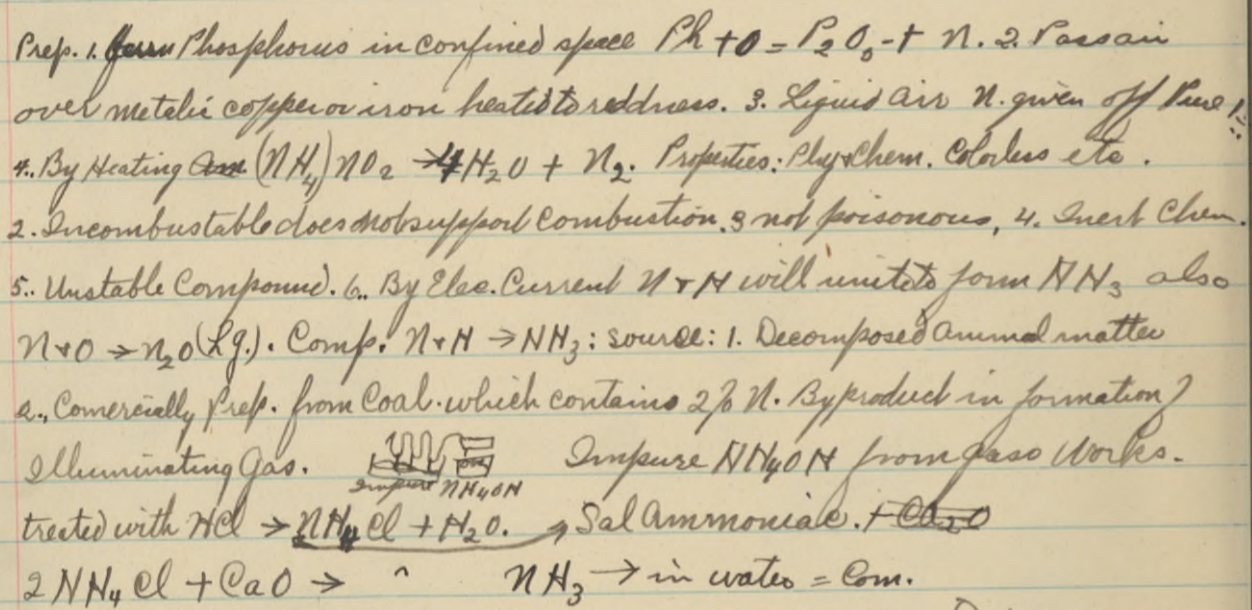 Prep. 1. Phosphorus in confined space Ph + O = P2O5 + N. 2. Pass air
over metalic copper or iron heated to reddness. 3. Liquid air N. given off Pure
4. By Heating (NH4)NO2 → 4H2O + N2. Properties: Phy & Chem. Colorless etc.
2. Incombustable does not support Combustion. 3 not poisonous, 4. Inert Chem.
5. Unstable Compound. 6. By Elec. Current N + H will unite to form NH3 also
N + O → N2O (Lg.). Comp. N + H → NH3: Source: 1. Decomposed animal matter
2. Comercially Prep. from Coal which contains 2% N. Byproduct in formation of
Illuminating Gas. Impure NH4OH from gas works.
Impure NH4OH
treated with HCl → NH4Cl + H2O. Sal Ammoniac. + Ca2O
2NH4Cl + CaO → NH3 → in water = Com.